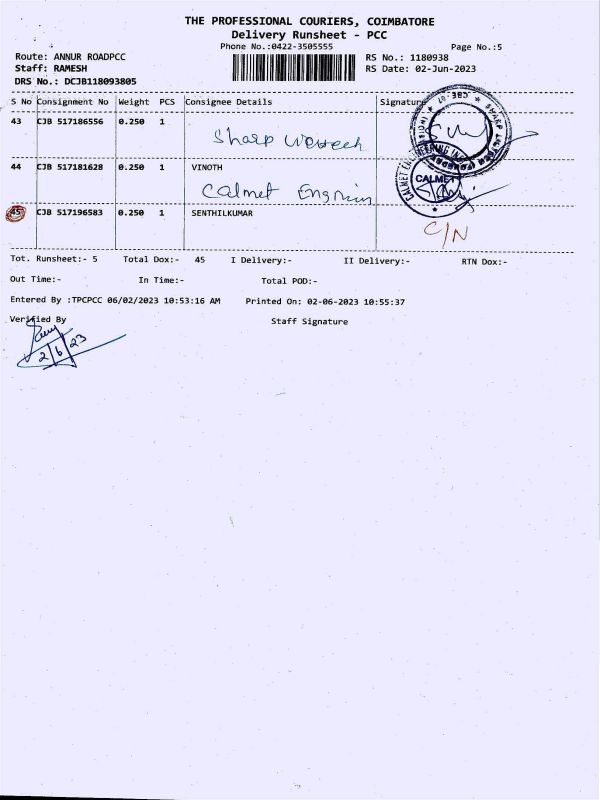 THE PROFESSIONAL COURIERS, COIMBATORE
Delivery Runsheet - PCC
Phone No.:0422-3505555 Page No.:5
Route: ANNUR ROADPCC RS No.: 1180938
Staff: RAMESH RS Date: 02-Jun-2023
DRS No.: DCJB118093805
S No Consignment No Weight PCS Consignee Details Signature
43 CJB 517186556 0.250 1
Sharp
44 CJB 517181628 0.250 1 VINOTH
Calmet
CALMET
45 CJB 517196583 0.250 1 SENTHILKUMAR
C/N
Tot. Runsheet:- 5 Total Dox:- 45 I Delivery:- II Delivery:- RTN Dox:-
Out Time:- In Time:- Total POD:-
Entered By :TPCPCC 06/02/2023 10:53:16 AM Printed On: 02-06-2023 10:55:37
Verified By Staff Signature
2/6/23